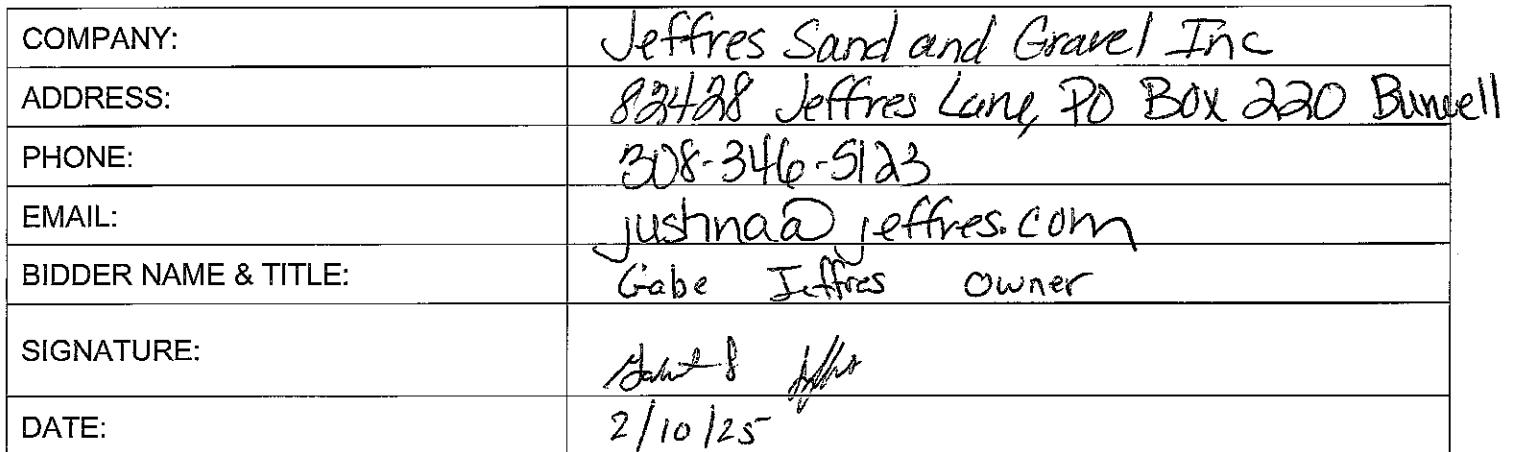 COMPANY: Jeffres Sand and Gravel Inc
ADDRESS: 82428 Jeffres Lane, PO Box 220 Burwell
PHONE: 308-346-5123
EMAIL: justina@jeffres.com
BIDDER NAME & TITLE: Gabe Jeffres Owner
SIGNATURE:
DATE: 2/10/25